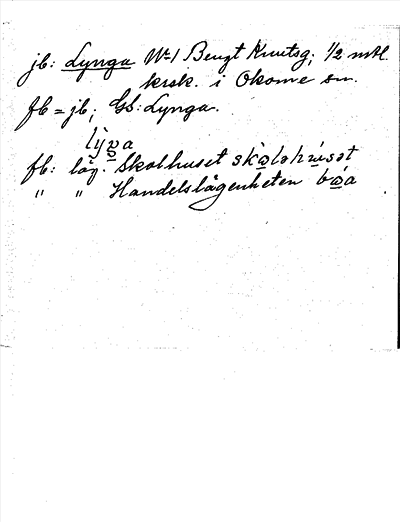 jb: Lynga No 1 Bengt Knutsg; 1/2 mtl.
krsk. i Okome sn.
fb = jb; GS: Lynga.
lỳŋa
fb: läg. Skolhuset skolohúsət
" " Handelslägenheten